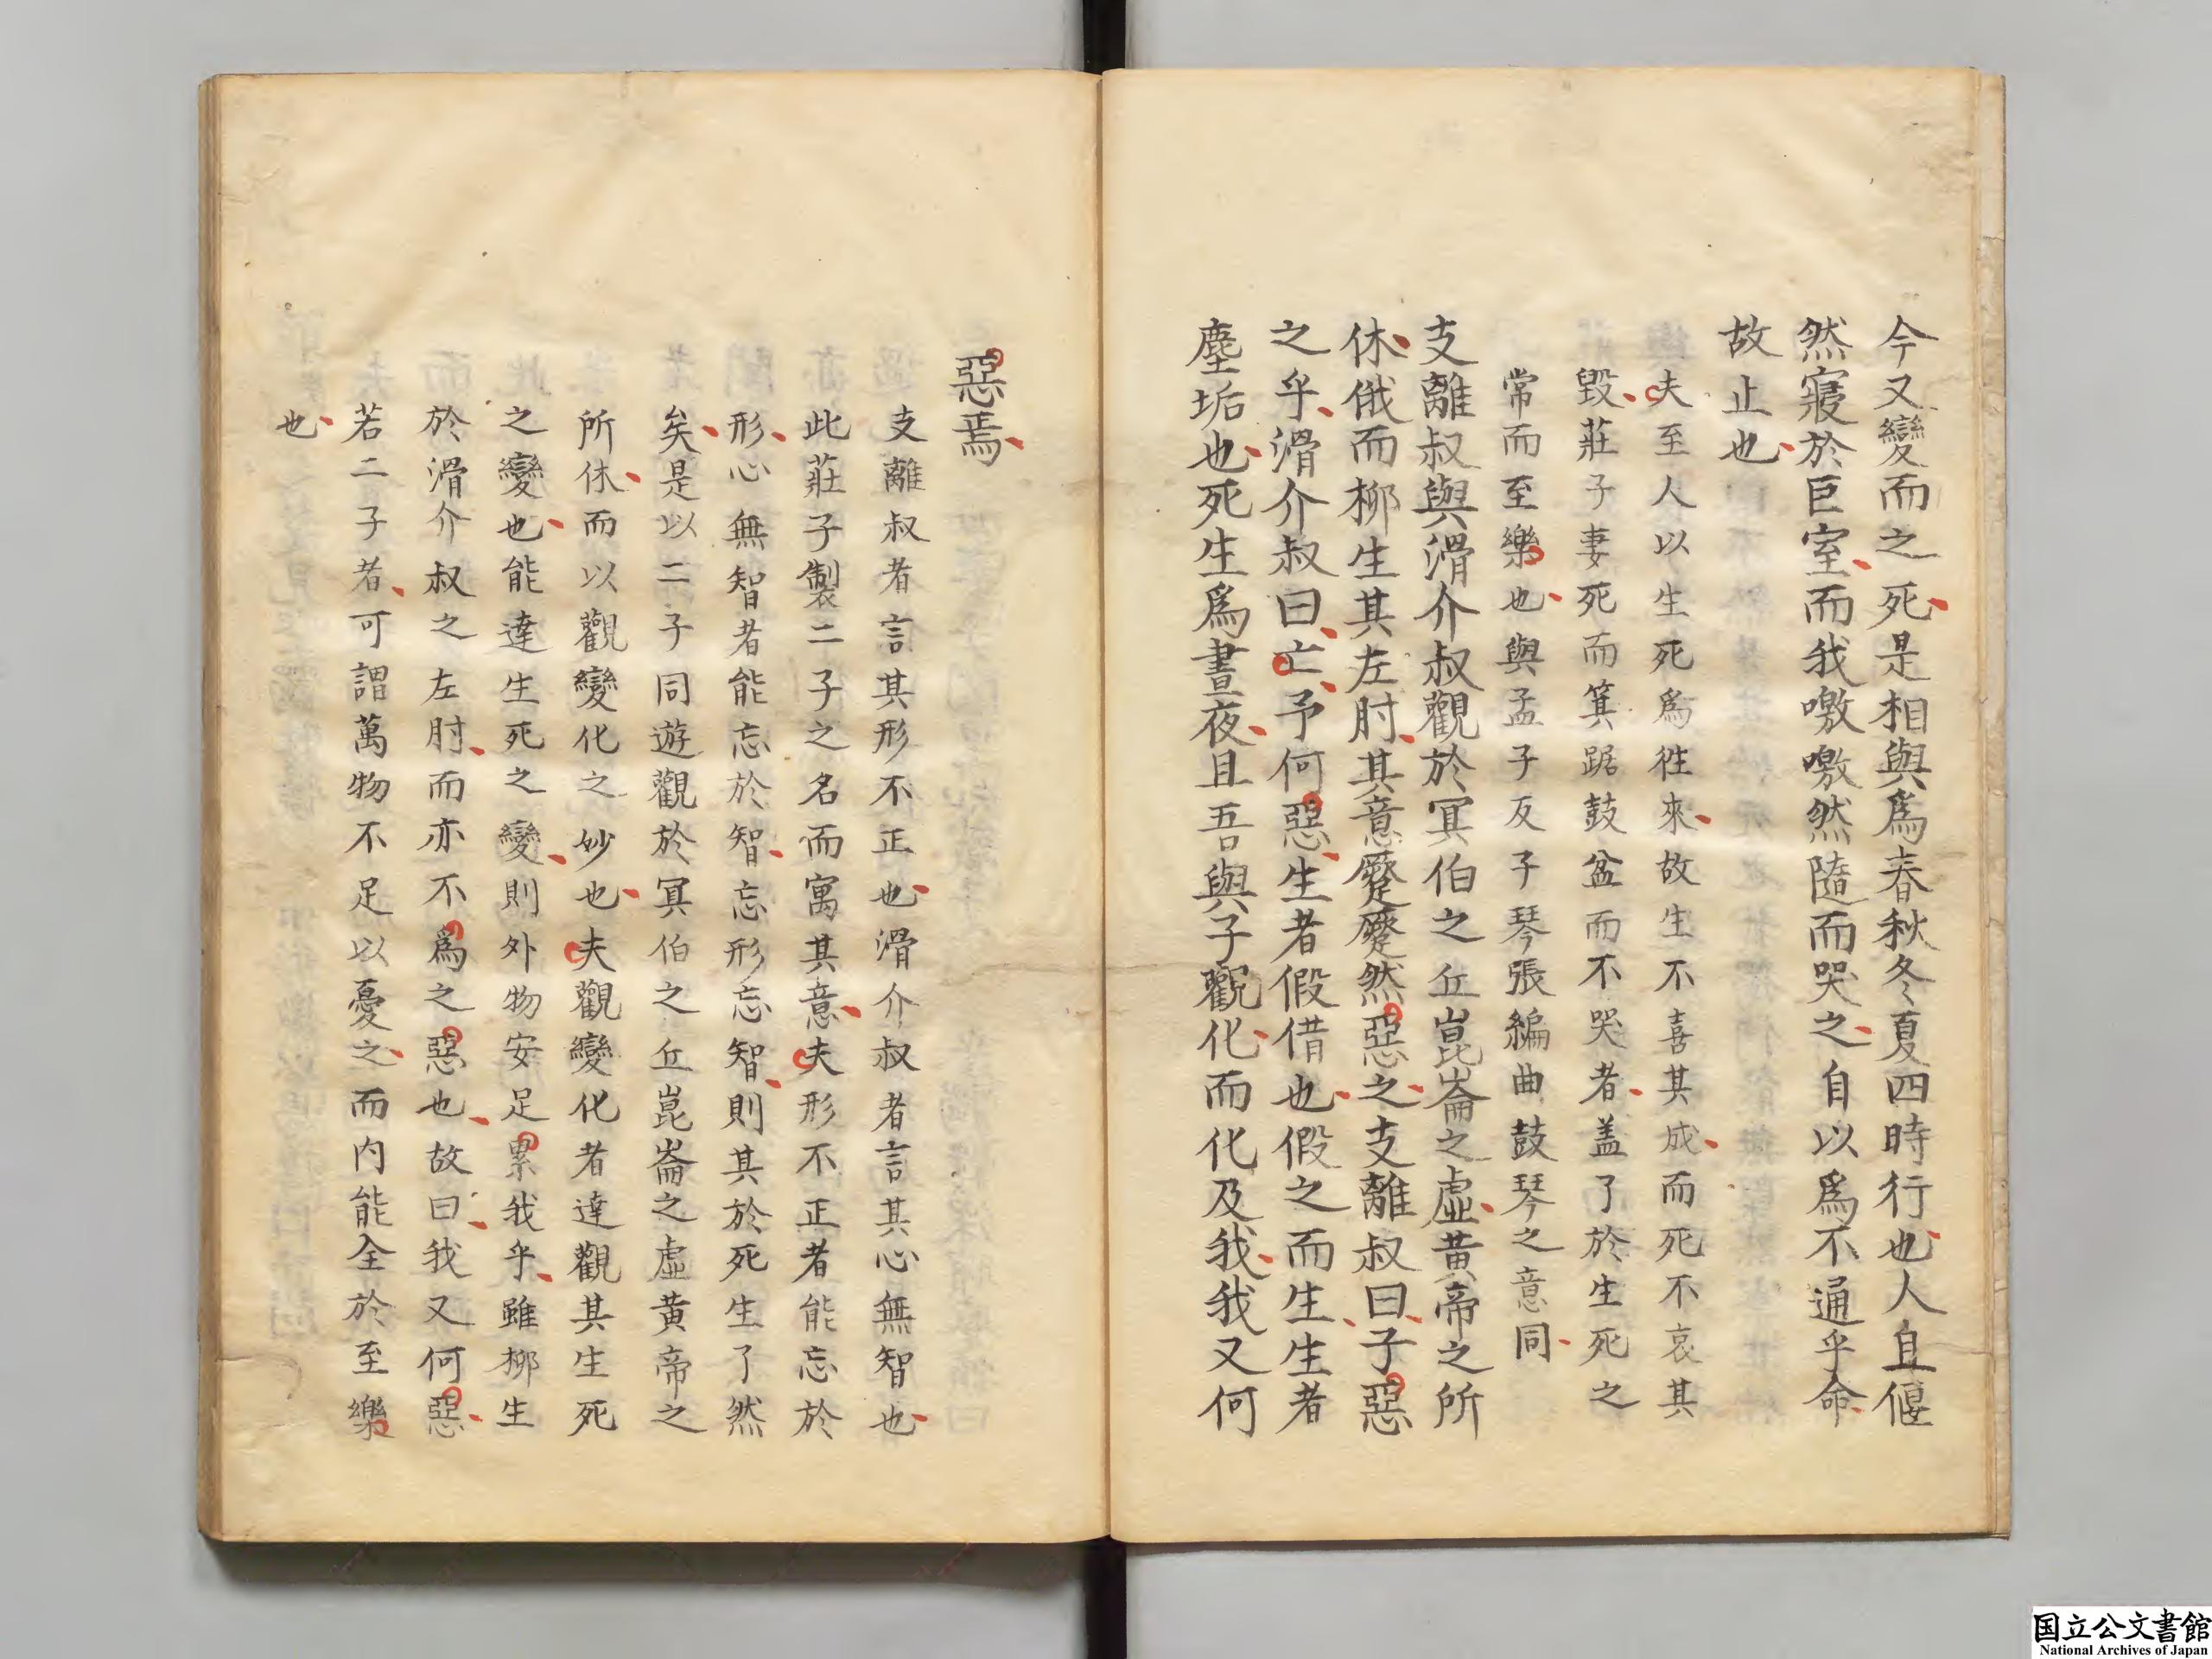 今又變而之死是相與爲春秋冬夏四時行也人且偃
然寢於巨室而我噭噭然隨而哭之自以爲不通乎命
故止也
夫至人以生死爲徃來故生不喜其成而死不哀其
毀莊子妻死而箕踞鼓盆而不哭者盖了於生死之
常而至樂也與孟子反子琴張編曲鼓琴之意同
支離叔與滑介叔觀於冥伯之丘崑崙之虛黃帝之所
休俄而柳生其左肘其意蹷蹷然惡之支離叔曰子惡
之乎滑介叔曰亡予何惡生者假借也假之而生生者
塵垢也死生爲晝夜且吾與子觀化而化及我我又何
惡焉
支離叔者言其形不正也滑介叔者言其心無智也
此莊子製二子之名而寓其意夫形不正者能忘於
形心無智者能忘於智忘形忘智則其於死生了然
矣是以二子同遊觀於冥伯之丘崑崙之虛黃帝之
所休而以觀變化之妙也夫觀變化者達觀其生死
之變也能達生死之變則外物安足累我乎雖柳生
於滑介叔之左肘而亦不爲之惡也故曰我又何惡
若二子者可謂萬物不足以憂之而内能全於至樂
也
国立公文書館
National Archives of Japan